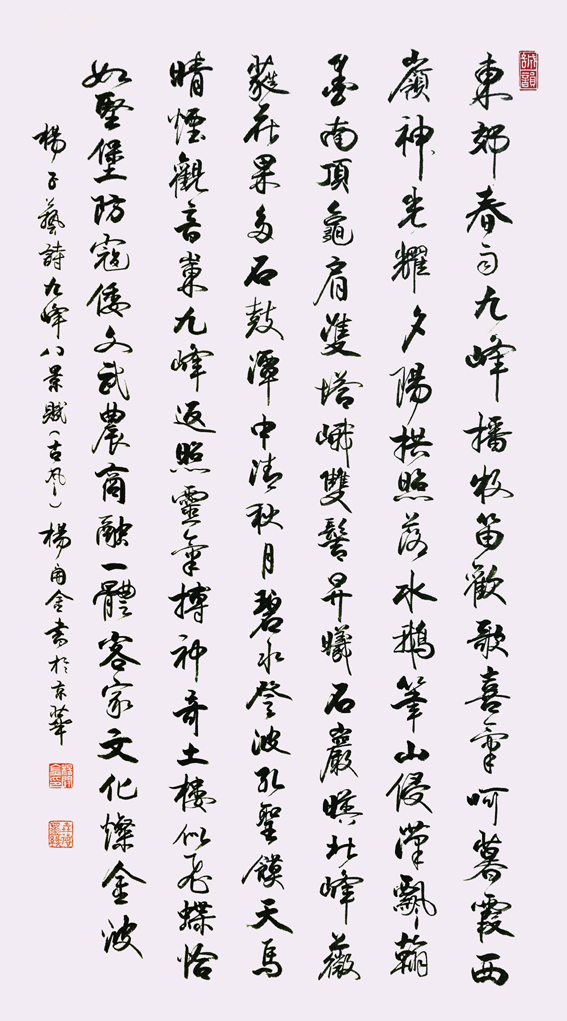 東郊春雨九峰播牧笛歡歌喜氣呵暮霞西
嶺神光耀夕陽拱照落水鵝筆山侵漢飄翰
墨南頂龜肩雙塔峨雙髻昇曦石巖曉北峰薇
蕤花果多石鼓潭中清秋月碧水登波孔聖饃天馬
晴煙觀音巢九峰返照靈氣搏神奇土樓似飛蝶恰
如堅堡防寇倭文武農商融一體客家文化燦金波
楊子藝詩九峰八景賦（古風）楊金書於京華